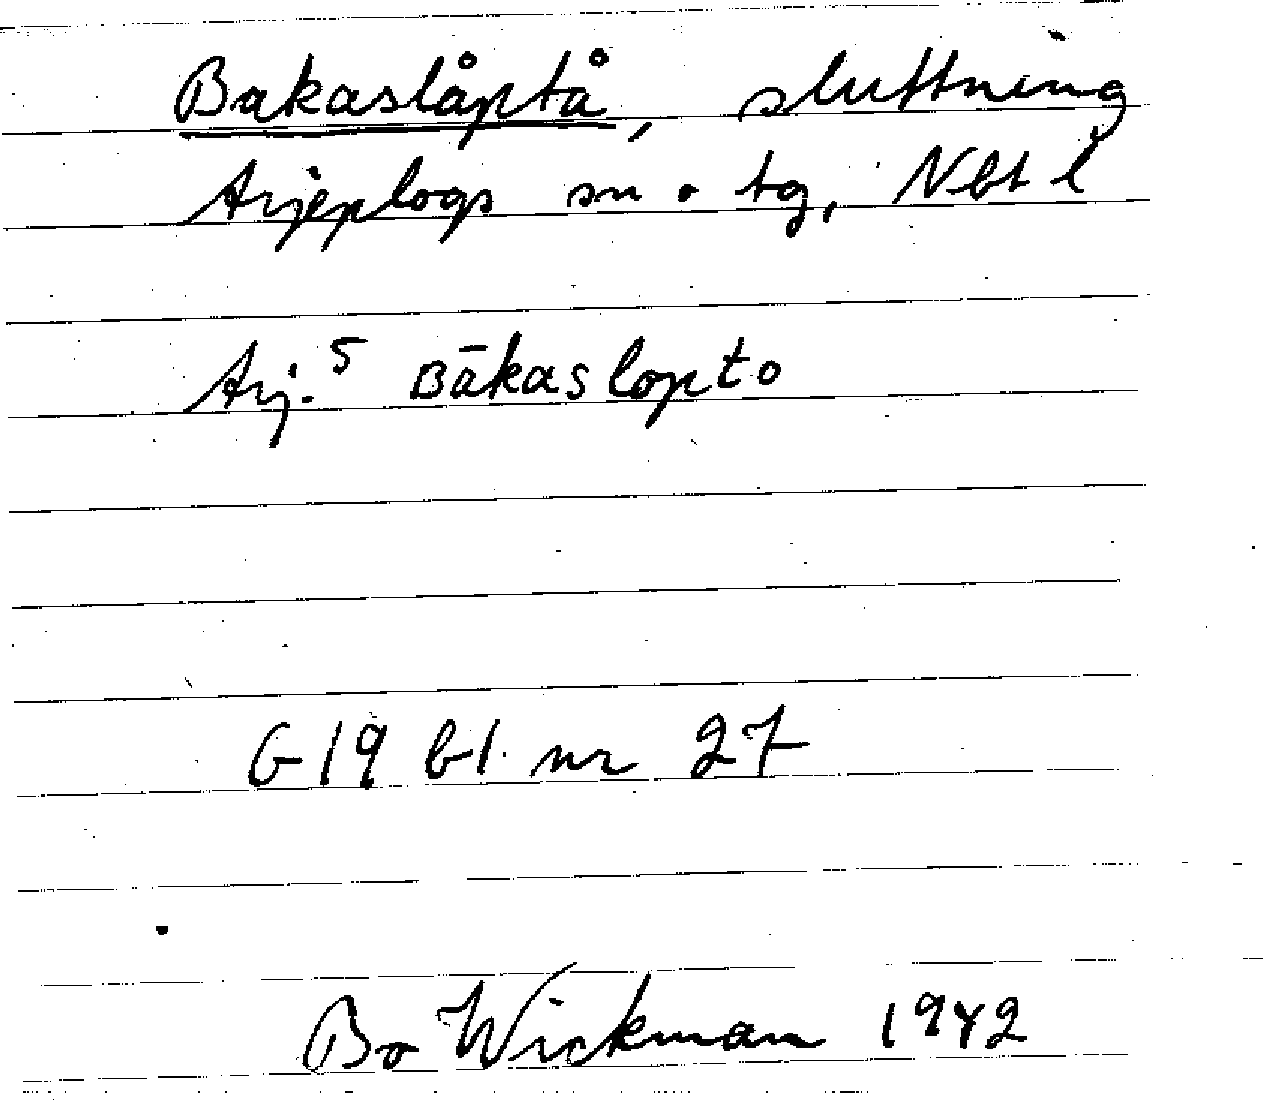 Bakaslåptå, sluttning
Arjeplogs sn o tg, Nbt l
Arj.⁵ Bākaslopto
G 19 bl. nr 27
Bo Wickman 1942